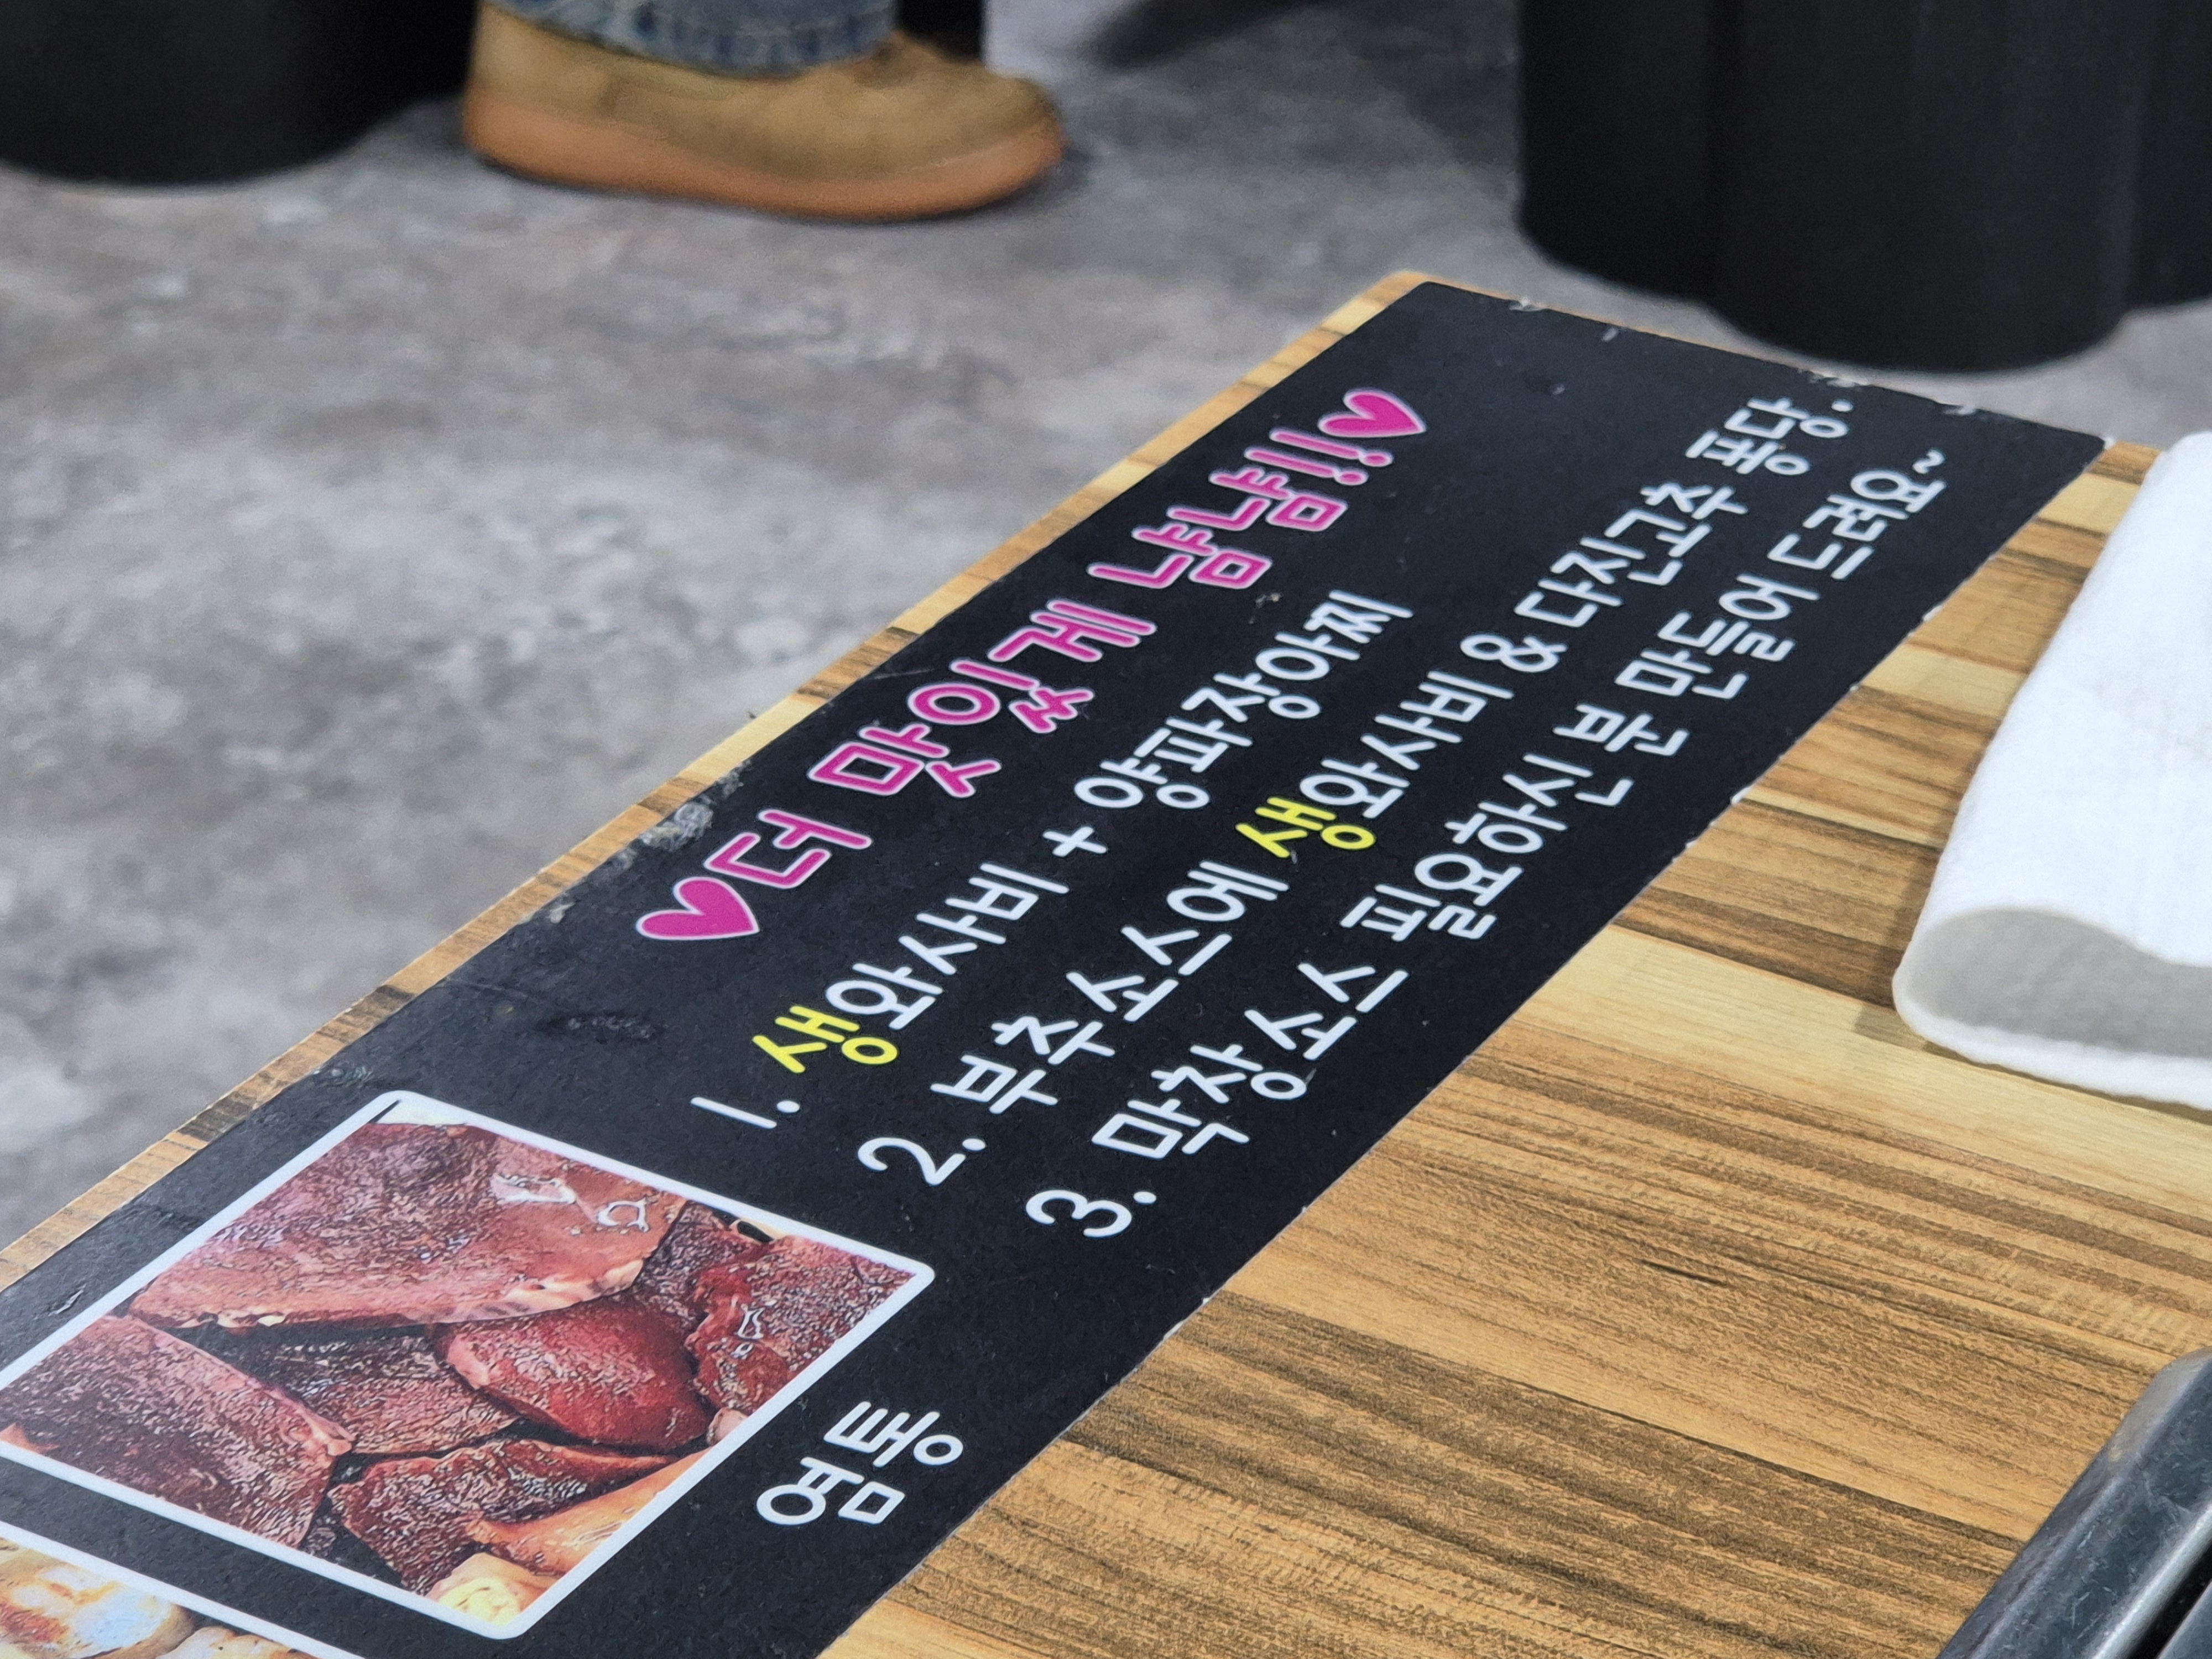 ♥더 맛있게 냠냠!!♥
1. 생와사비 + 양파장아찌
2. 부추소스에 생와사비 & 다진고추 퐁당.
3. 막창소스 필요하신 분 만들어 드려요~
염통